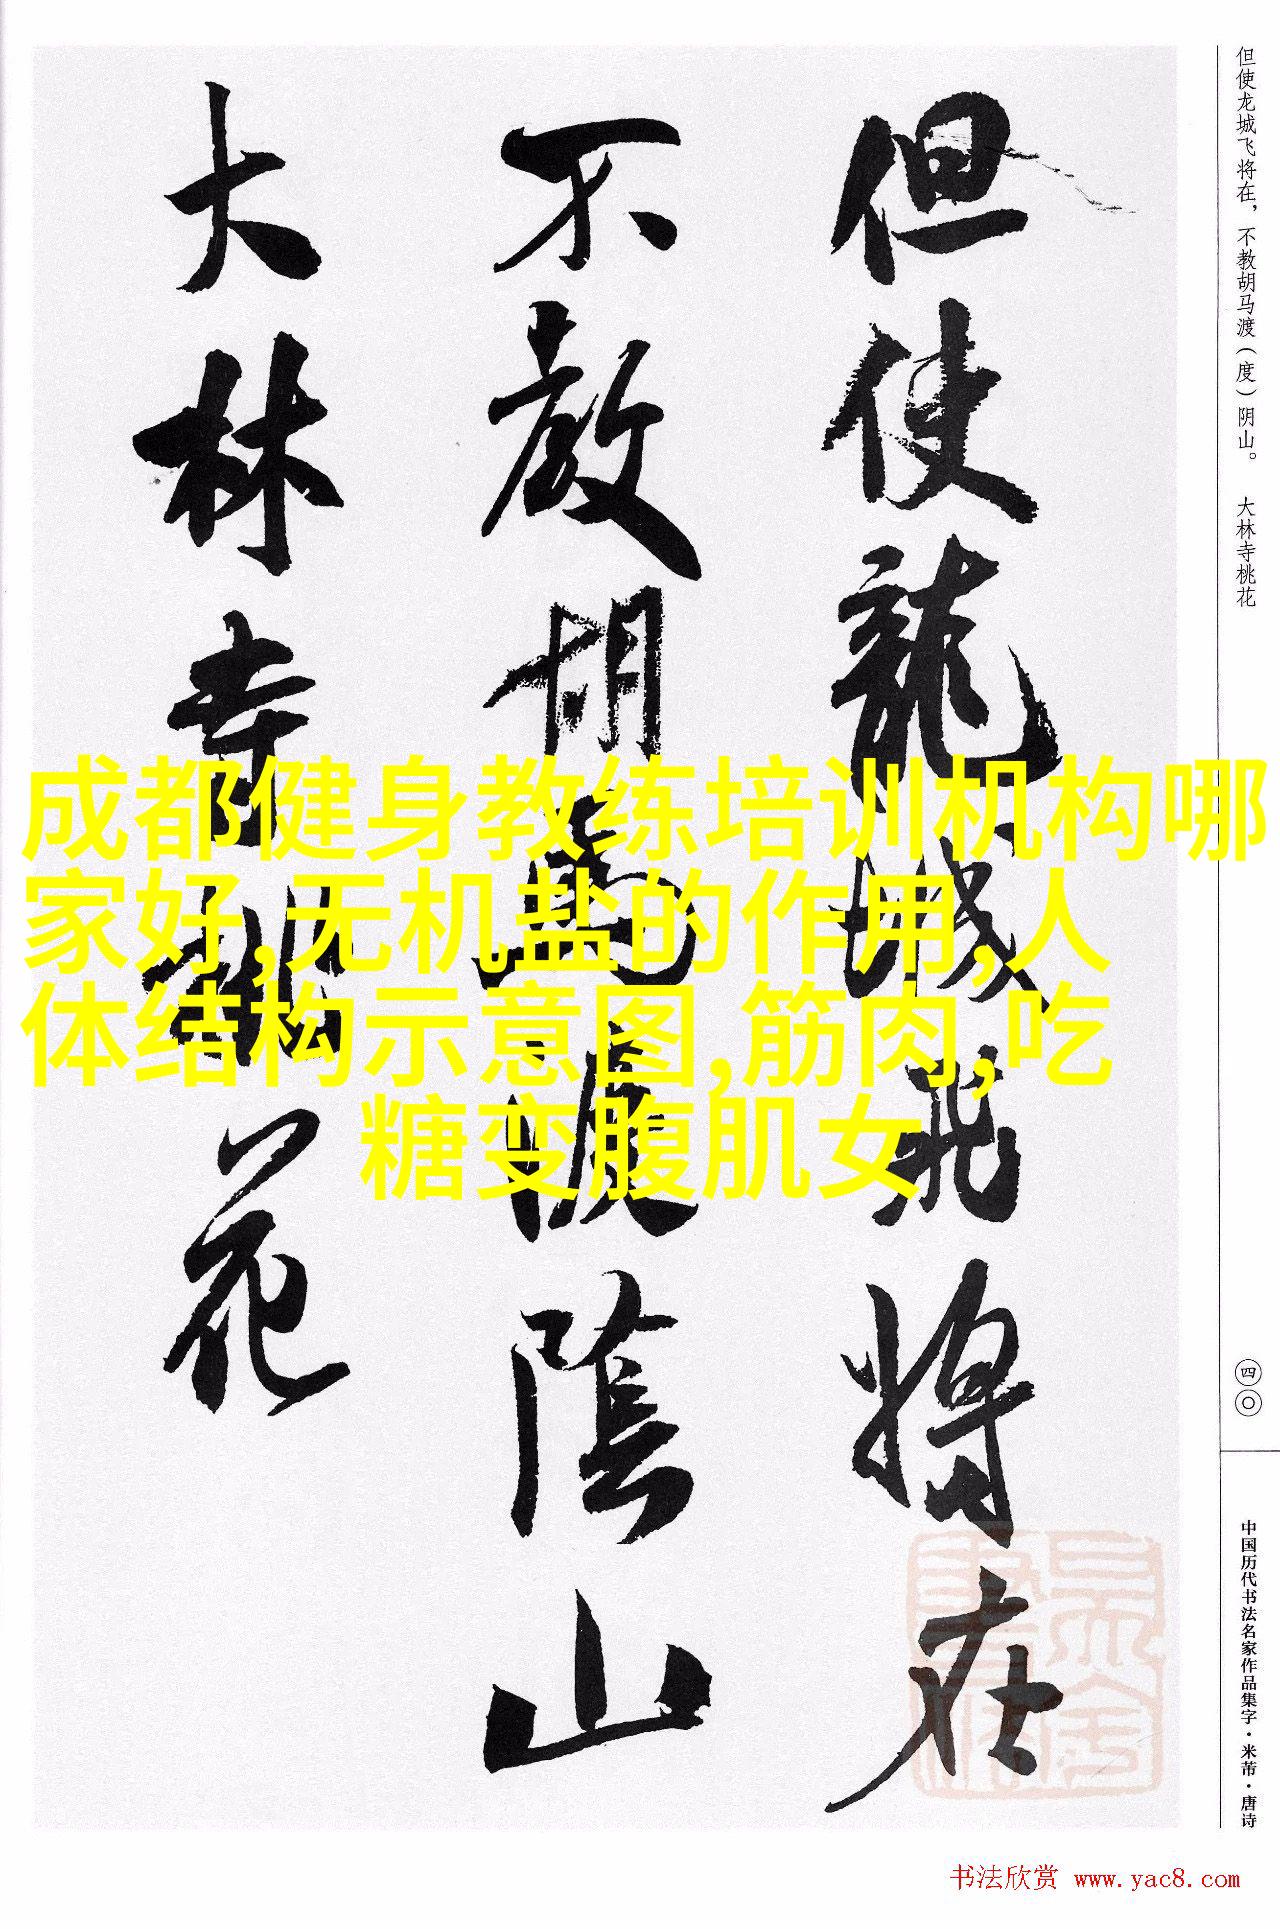 但使龍城飛將在
不教胡馬渡陰山
大林寺桃花
但使龙城飞将在，不教胡马渡（度）阴山。 大林寺桃花
四〇
中国历代书法名家作品集字·米芾·唐诗
成都健身教练培训机构哪
家好,无机盐的作用,人
体结构示意图,筋肉,吃
糖变腹肌女
书法欣赏 www.yac8.com